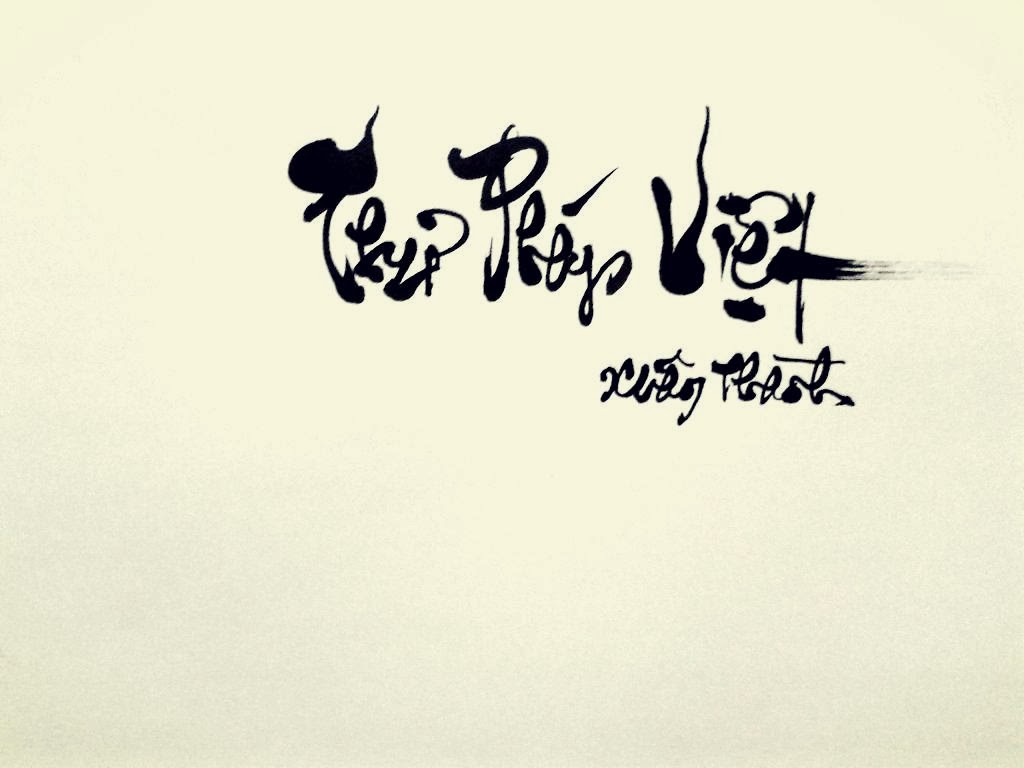 Thư Pháp Việt
Xuân Thành